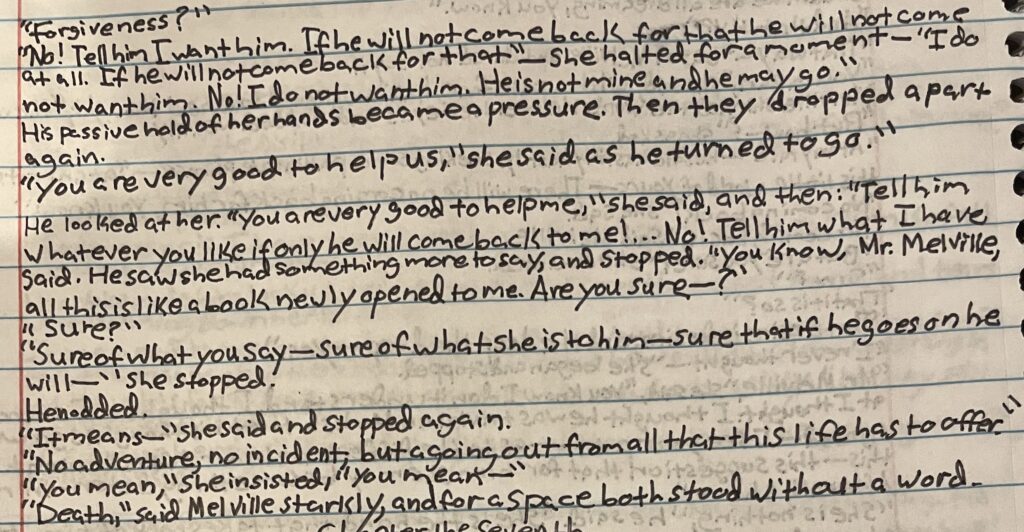 "Forgiveness?"
"No! Tell him I want him. If he will not come back for that he will not come
at all. If he will not come back for that"—she halted for a moment—"I do
not want him. No! I do not want him. He is not mine and he may go."
His passive hold of her hands became a pressure. Then they dropped apart
again.
"You are very good to help us," she said as he turned to go."
He looked at her. "You are very good to help me," she said, and then: "Tell him
whatever you like if only he will come back to me!... No! Tell him what I have
said. He saw she had something more to say, and stopped. "You know, Mr. Melville,
all this is like a book newly opened to me. Are you sure—?"
"Sure?"
"Sure of what you say—sure of what she is to him—sure that if he goes on he
will—" she stopped.
He nodded.
"It means—" she said and stopped again.
"No adventure, no incident, but a going out from all that this life has to offer."
"You mean," she insisted, "you mean—"
"Death," said Melville starkly, and for a space both stood without a word.
Chapter the Seventh